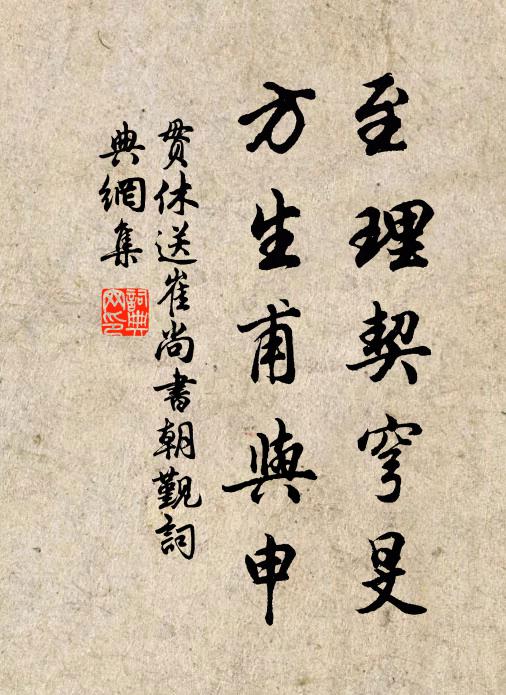 至理契穹旻
方生甫與申
貫休送崔尚書朝覲詞
典網集
詞典
网印